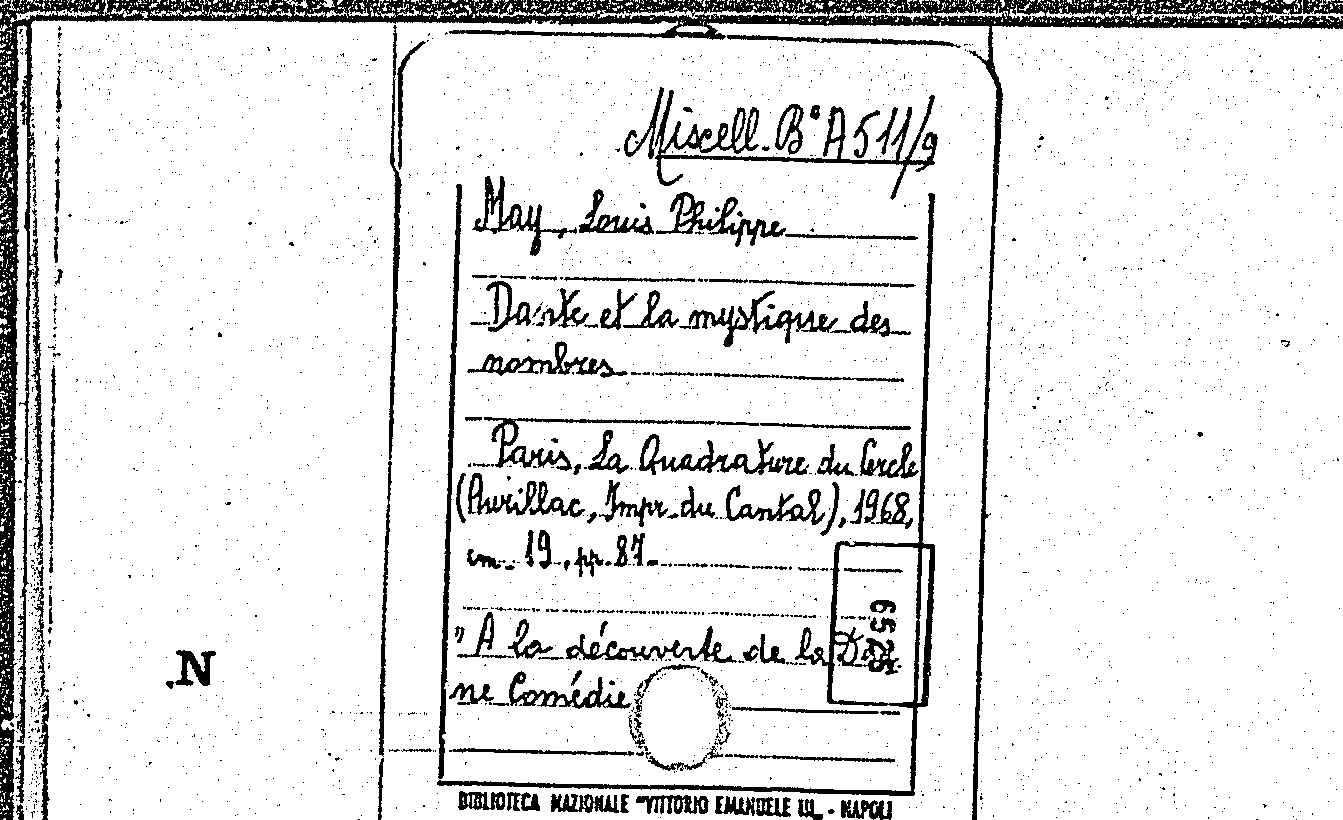 Miscell. B° A 511/9
May, Louis Philippe
Dante et la mystique des
nombres
Paris, La Quadrature du Cercle
(Aurillac, Impr. du Cantal), 1968,
cm. 19, pp. 87.
"A la découverte de la
ne Comédie
.N
BIBLIOTECA NAZIONALE "VITTORIO EMANUELE III„ - NAPOLI